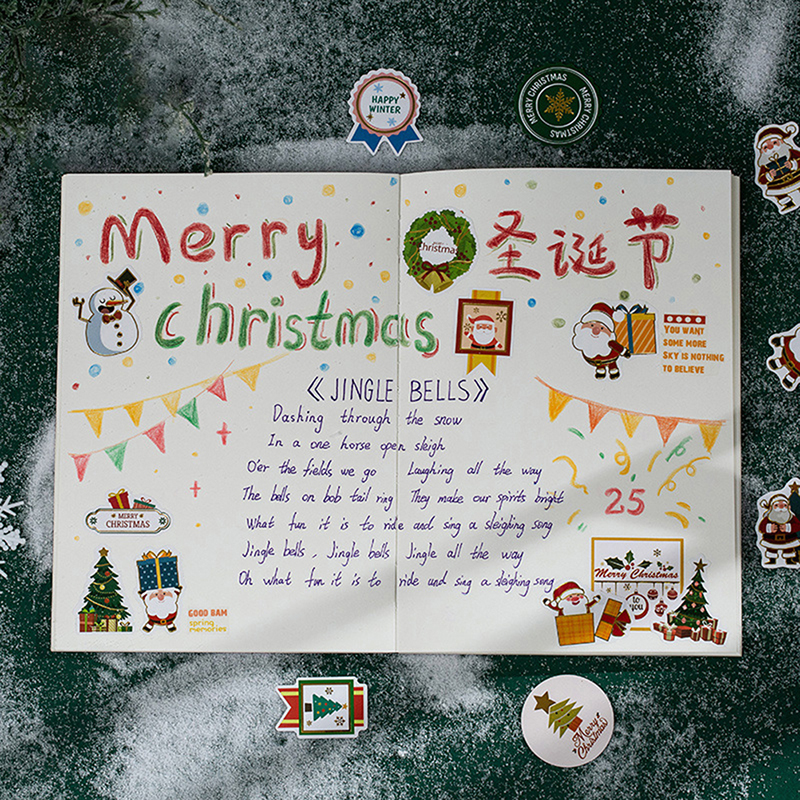 HAPPY
WINTER
MERRY CHRISTMAS MERRY CHRISTMAS MERRY CHRISTMAS
Merry
christmas
圣诞节
Christmas
YOU WANT
SOME MORE
SKY IS NOTHING
TO BELIEVE
《JINGLE BELLS》
Dashing through the snow
In a one horse open sleigh
O'er the fields we go Laughing all the way
The bells on bob tail ring They make our spirits bright
What fun it is to ride and sing a sleighing song
Jingle bells, Jingle bells Jingle all the way
Oh what fun it is to ride and sing a sleighing song
25
MERRY
CHRISTMAS
GOOD BAM
spring
memories
Merry Christmas
to
you
Merry
Christmas